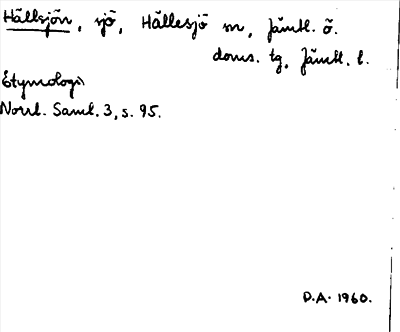 Hällsjön, sjö, Hällesjö sn, Jämtl. ö.
doms. tg, Jämtl. l.
Etymologi
Norrl. Saml. 3, s. 95.
D.A. 1960.